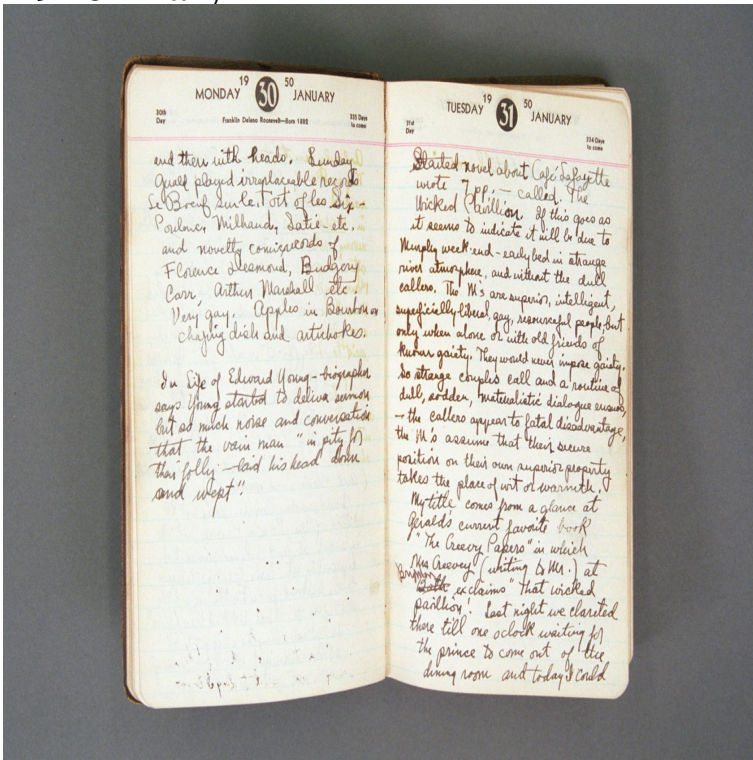 19 30 50
MONDAY JANUARY
30th Day
Franklin Delano Roosevelt—Born 1882
335 Days to come
and then with heads. Sunday
played irreplaceable records
Le Boeuf sur le Toit of les Six -
Poulenc, Milhaud, Satie - etc.
and novelty comic records of
Florence Desmond,
Carr, Arthur Marshall etc.
Very gay. Apples in Bourbon in
chafing dish and artichokes.
In Life of Edward Young - biographer
says Young started to deliver sermon
but so much noise and conversation
that the vain man "in pity for
their folly - laid his head down
and wept".
19 31 50
TUESDAY JANUARY
31st Day
334 Days to come
Started novel about Café Lafayette
wrote 7 pp. - called The
Wicked Pavillion. If this goes as
it seems to indicate it will be due to
Murphy week-end - early bed in strange
river atmosphere, and without the dull
callers. The M's are superior, intelligent,
superficially liberal, gay, resourceful people, but
only when alone or with old friends of
known gaiety. They would never impose gaiety.
So strange couples call and a routine of
dull, sodden, materialistic dialogue ensues,
- the callers appear to fatal disadvantage,
the M's assume that their secure
position on their own superior property
takes the place of wit or warmth.
My title comes from a glance at
Gerald's current favorite book
"The Creevy Papers" in which
Mrs Creevey (writing to Mr.) at
Brighton
exclaims "That wicked
pavillion! Last night we clareted
there till one oclock waiting for
the prince to come out of the
dining room and today I could